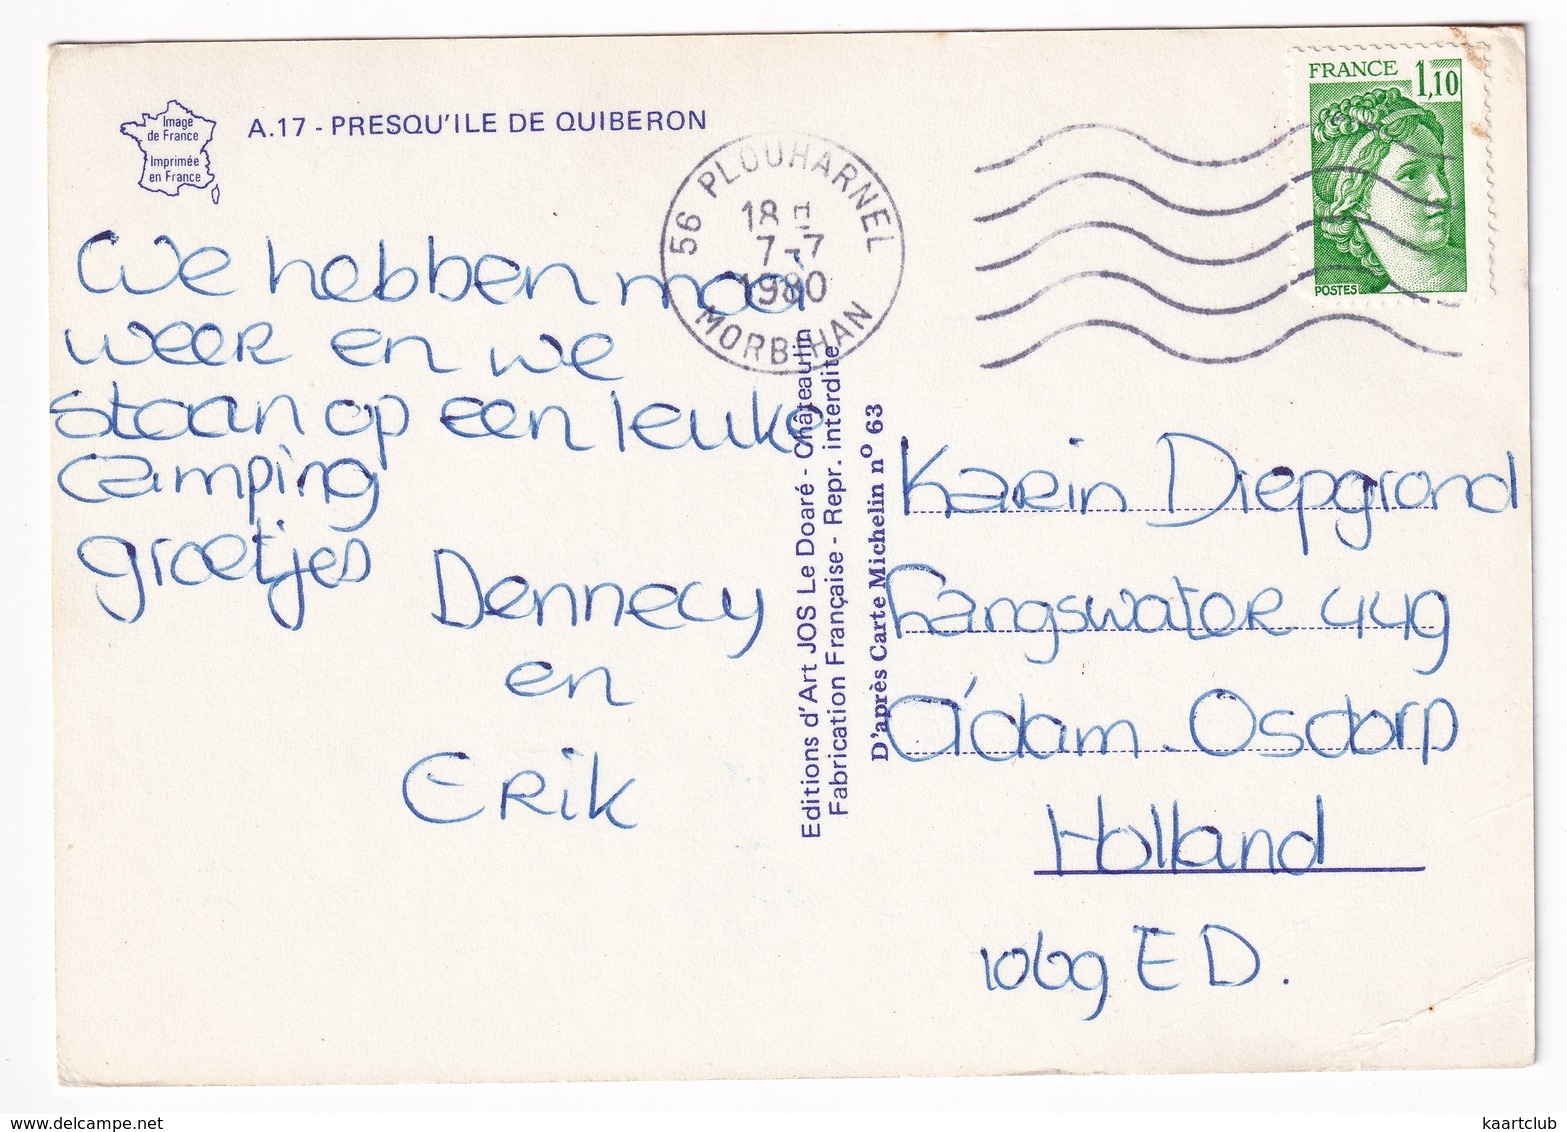 Image
de France
Imprimée
en France
A.17 - PRESQU'ILE DE QUIBERON
56 PLOUHARNEL
18 H
7-7
1980
MORBIHAN
FRANCE 1,10
POSTES
We hebben mooi
weer en we
staan op een leuke
camping
groetjes
Dennecy
en
Erik
Editions d'Art JOS Le Doaré - Châteaulin
Fabrication Française - Repr. interdite
D'après Carte Michelin nº 63
Karin Diepgrond
Langswater 449
A'dam Osdorp
Holland
1069 ED.
www.delcampe.net
kaartclub